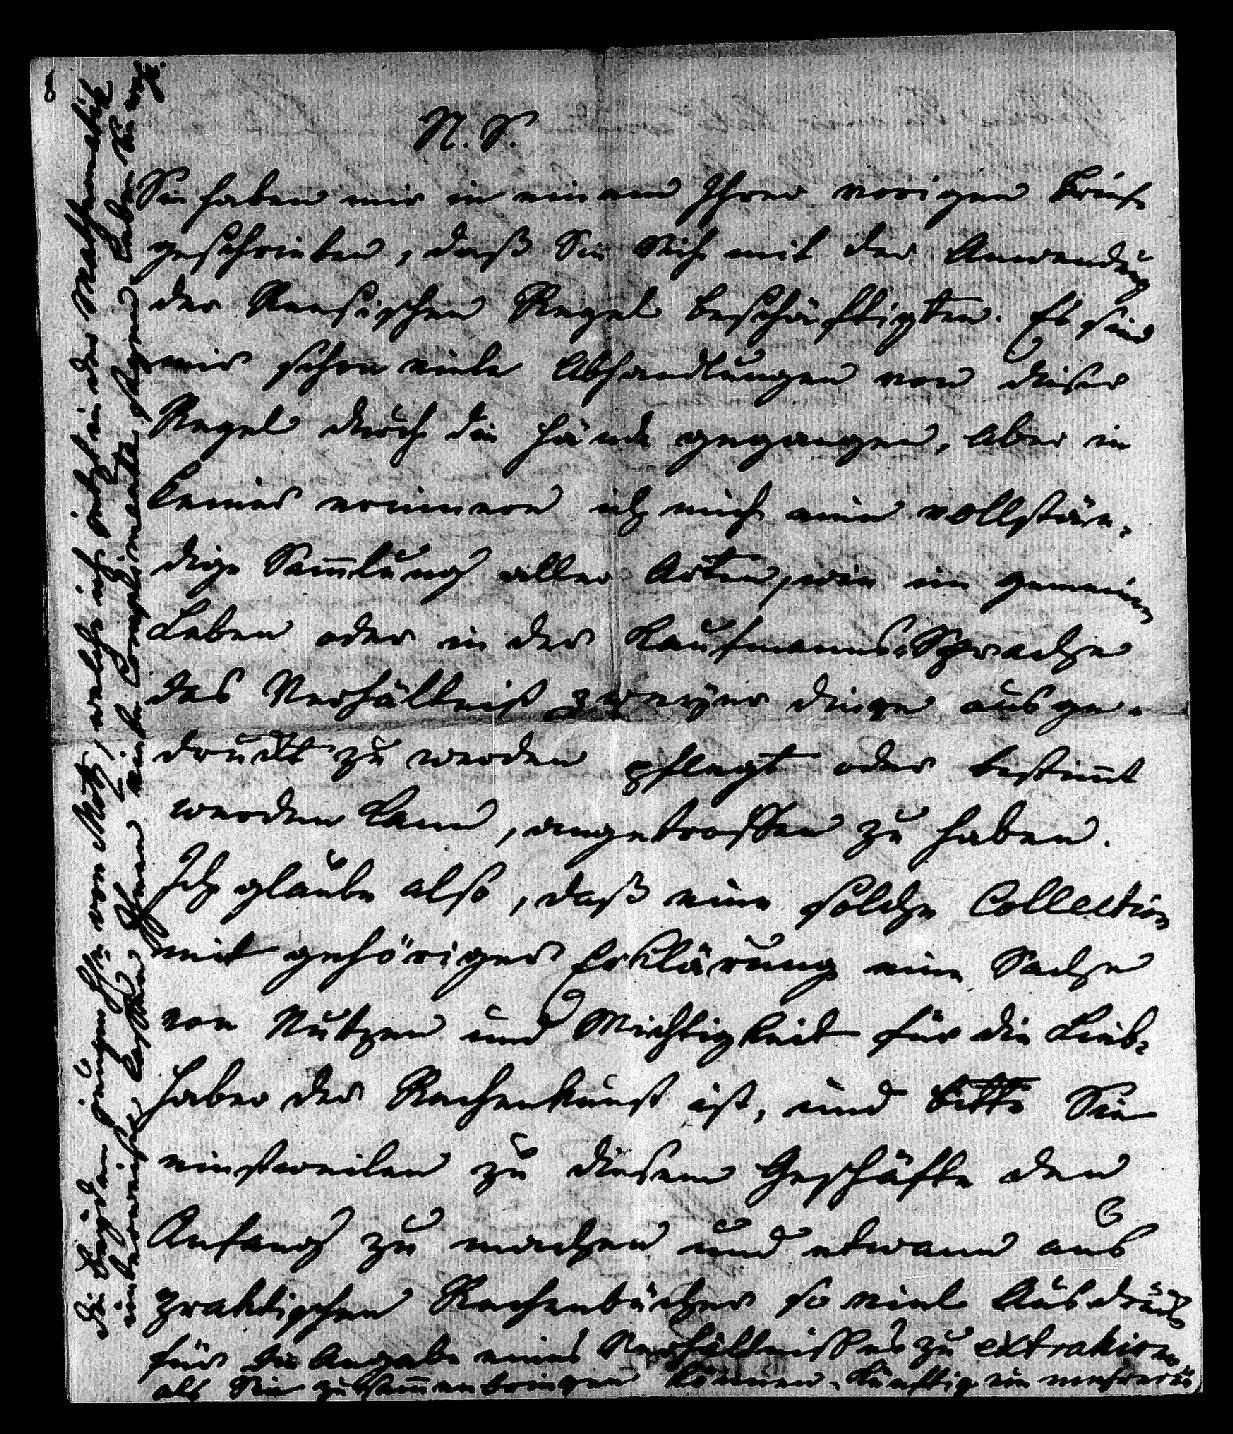 N. S.
Sie haben mir in einem Ihrer vorigen Briefe
geschrieben, daß Sie Sich mit der Anwendung
der Reesischen Regel beschäftigten. Es sind
mir schon viele Abhandlungen von dieser
Regel durch die Hände gegangen, aber in
keiner erinnere ich mich eine vollstän-
dige Sammlung aller Arten, wie im gemeinen
Leben oder in der Kaufmanns-Sprache
das Verhältniß zweyer Dinge ausge-
druckt zu werden pflegt oder bestimmt
werden kann, angetroffen zu haben.
Ich glaube also, daß eine solche Collection
mit gehöriger Erklärung eine Sache
von Nutzen und Wichtigkeit für die Lieb-
haber der Rechenkunst ist, und bitte Sie
einstweilen zu diesem Geschäfte den
Anfang zu machen und etwann aus
praktischen Rechenbücher so viele Ausdrücke
für die Angabe eines Verhältnisses zu extrahiren
als Sie zusammenbringen können. Künftig ein mehreres
Die beyden jungen Hr. von Motz, welche ich jetzt in der Mathematik
unterweise lassen Ihnen viele Complimente sagen. Leben Sie wohl.